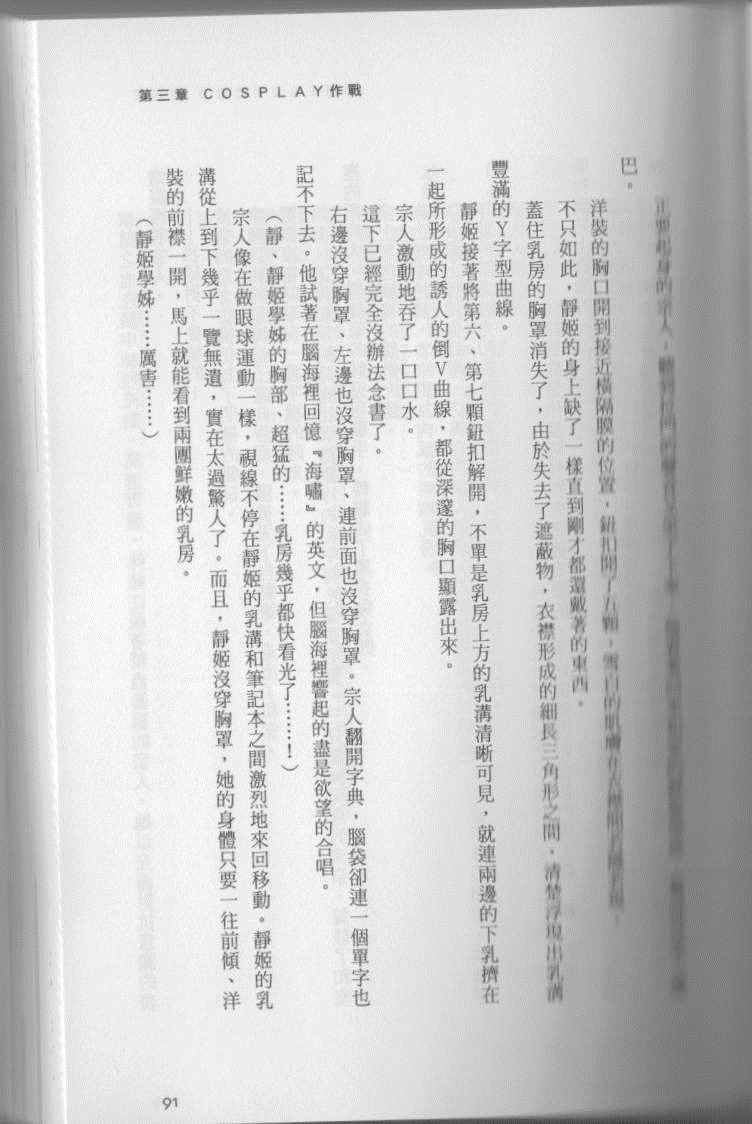 第三章 COSPLAY作戰
巴。
洋裝的胸口開到接近橫隔膜的位置，鈕扣開了五顆，雪白的肌膚
不只如此，靜姬的身上缺了一樣直到剛才都還戴著的東西。
蓋住乳房的胸罩消失了，由於失去了遮蔽物，衣襟形成的細長三角形之間，清楚浮現出乳溝
豐滿的Y字型曲線。
靜姬接著將第六、第七顆鈕扣解開，不單是乳房上方的乳溝清晰可見，就連兩邊的下乳擠在
一起所形成的誘人的倒V曲線，都從深邃的胸口顯露出來。
宗人激動地吞了一口口水。
這下已經完全沒辦法念書了。
右邊沒穿胸罩、左邊也沒穿胸罩、連前面也沒穿胸罩。宗人翻開字典，腦袋卻連一個單字也
記不下去。他試著在腦海裡回憶『海嘯』的英文，但腦海裡響起的盡是欲望的合唱。
（靜、靜姬學姊的胸部、超猛的……乳房幾乎都快看光了……！）
宗人像在做眼球運動一樣，視線不停在靜姬的乳溝和筆記本之間激烈地來回移動。靜姬的乳
溝從上到下幾乎一覽無遺，實在太過驚人了。而且，靜姬沒穿胸罩，她的身體只要一往前傾、洋
裝的前襟一開，馬上就能看到兩團鮮嫩的乳房。
（靜姬學姊……厲害……）
91